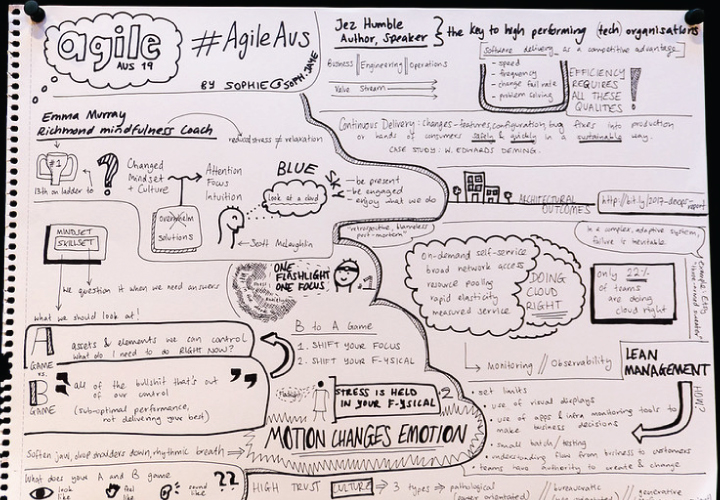 agile
AUS 19
#AgileAus
BY SOPHIE@SOPH.JANE
Jez Humble
Author, Speaker
the key to high performing (tech) organisations
Software delivery as a competitive advantage
Business || Engineering || Operations
Value Stream
- speed
- frequency
- change fail rate
- problem solving
EFFICIENCY
REQUIRES
ALL THESE
QUALITIES!
Continuous Delivery - changes - features, configuration, bug fixes into production
or hands of consumers safely & quickly in a sustainable way.
CASE STUDY: W. EDWARDS DEMING.
ARCHITECTURAL
OUTCOMES
Emma Murray
Richmond mindfulness Coach
reduced stress ≠ relaxation
#1
13th on ladder to
?
Changed
Mindset
+ Culture
Attention
Focus
Intuition
overwhelm
solutions
BLUE SKY
look at a cloud
- be present
- be engaged
- enjoy what we do
Scott McLaughlin
MINDSET
SKILLSET
we question it when we need answers
what we should look at!
"retrospective, blameless
post-mortem"
In a complex, adaptive system,
failure is inevitable.
on-demand self-service
broad network access
resource pooling
rapid elasticity
measured service
DOING
CLOUD
RIGHT
only 22%
of teams
are doing
cloud right
ONE
FLASHLIGHT
ONE FOCUS
1
A
GAME
assets & elements we can control
what do I need to do RIGHT NOW?
vs.
B
GAME
"all of the bullshit that's out
of our control"
(sub-optimal performance,
not delivering your best)
B to A Game
1. SHIFT YOUR FOCUS
2. SHIFT YOUR F-YSICAL
STRESS IS HELD
IN YOUR F-YSICAL
2
MOTION CHANGES EMOTION
Soften jaw, drop shoulders down, rhythmic breath
Monitoring // Observability
LEAN
MANAGEMENT
HOW?
- set limits
- use of visual displays
- use of apps & infra monitoring tools to
make business decisions
- small batch / testing
- understanding flow from business to customers
- teams have authority to create & change
What does your A and B game
look
like
feel
like
sound
like
??
HIGH TRUST CULTURE → 3 types → pathological
(power orientated)
bureaucratic
generative